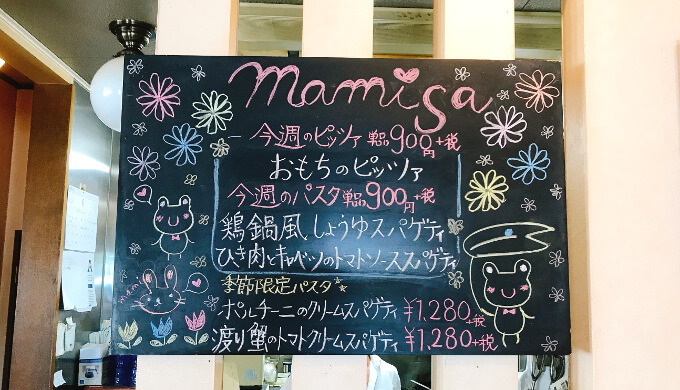 mamisa
今週のピッツァ 単品900円+税
おもちのピッツァ
今週のパスタ 単品900円+税
鶏鍋風、しょうゆスパゲティ
ひき肉とキャベツのトマトソーススパゲティ
季節限定パスタ
ポルチーニのクリームスパゲティ ¥1.280+税
渡り蟹のトマトクリームスパゲティ ¥1.280+税